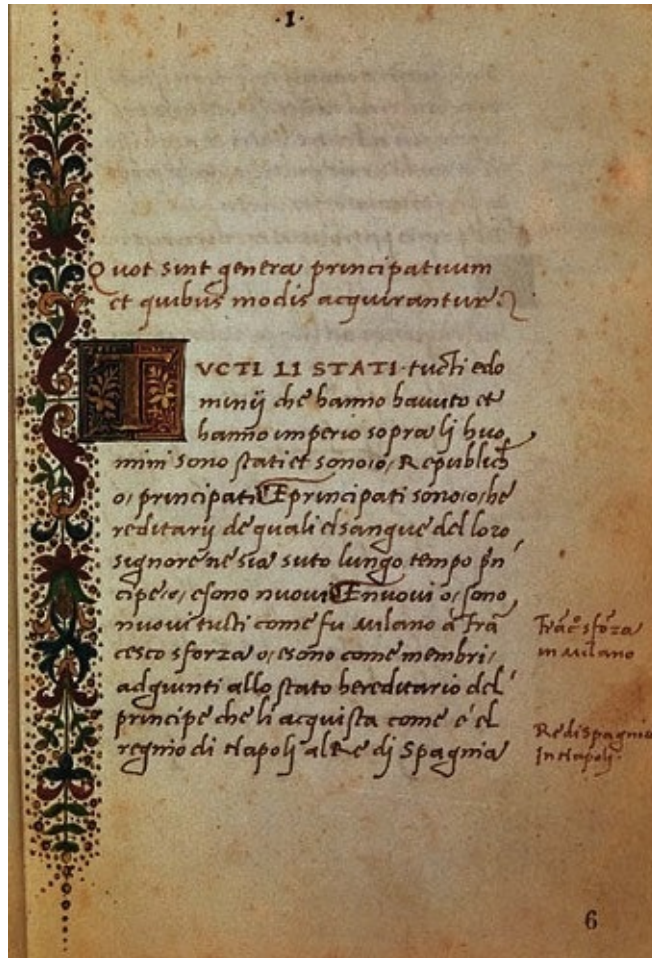 ·I·
Quot sint genera principatuum
et quibus modis acquirantur
TUCTI LI STATI · tucti e do
minij che hanno havuto et
hanno imperio sopra li huo
mini sono stati et sono, o, Republich
o, principati E principati sono, o, he
reditarij de quali el sangue del loro
signore ne sia suto lungo tempo pn
cipe, o, e sono nuovi E nuovi o, sono
nuovi tucti come fu Milano a Fra
cesco sforza o, e sono come membri
adgiunti allo stato hereditario del
principe che li acquista come é el
regnio di Napolj al Re dj Spagnia
Frac° sforza
in Milano
Re di spagnia
In Napolj.
6